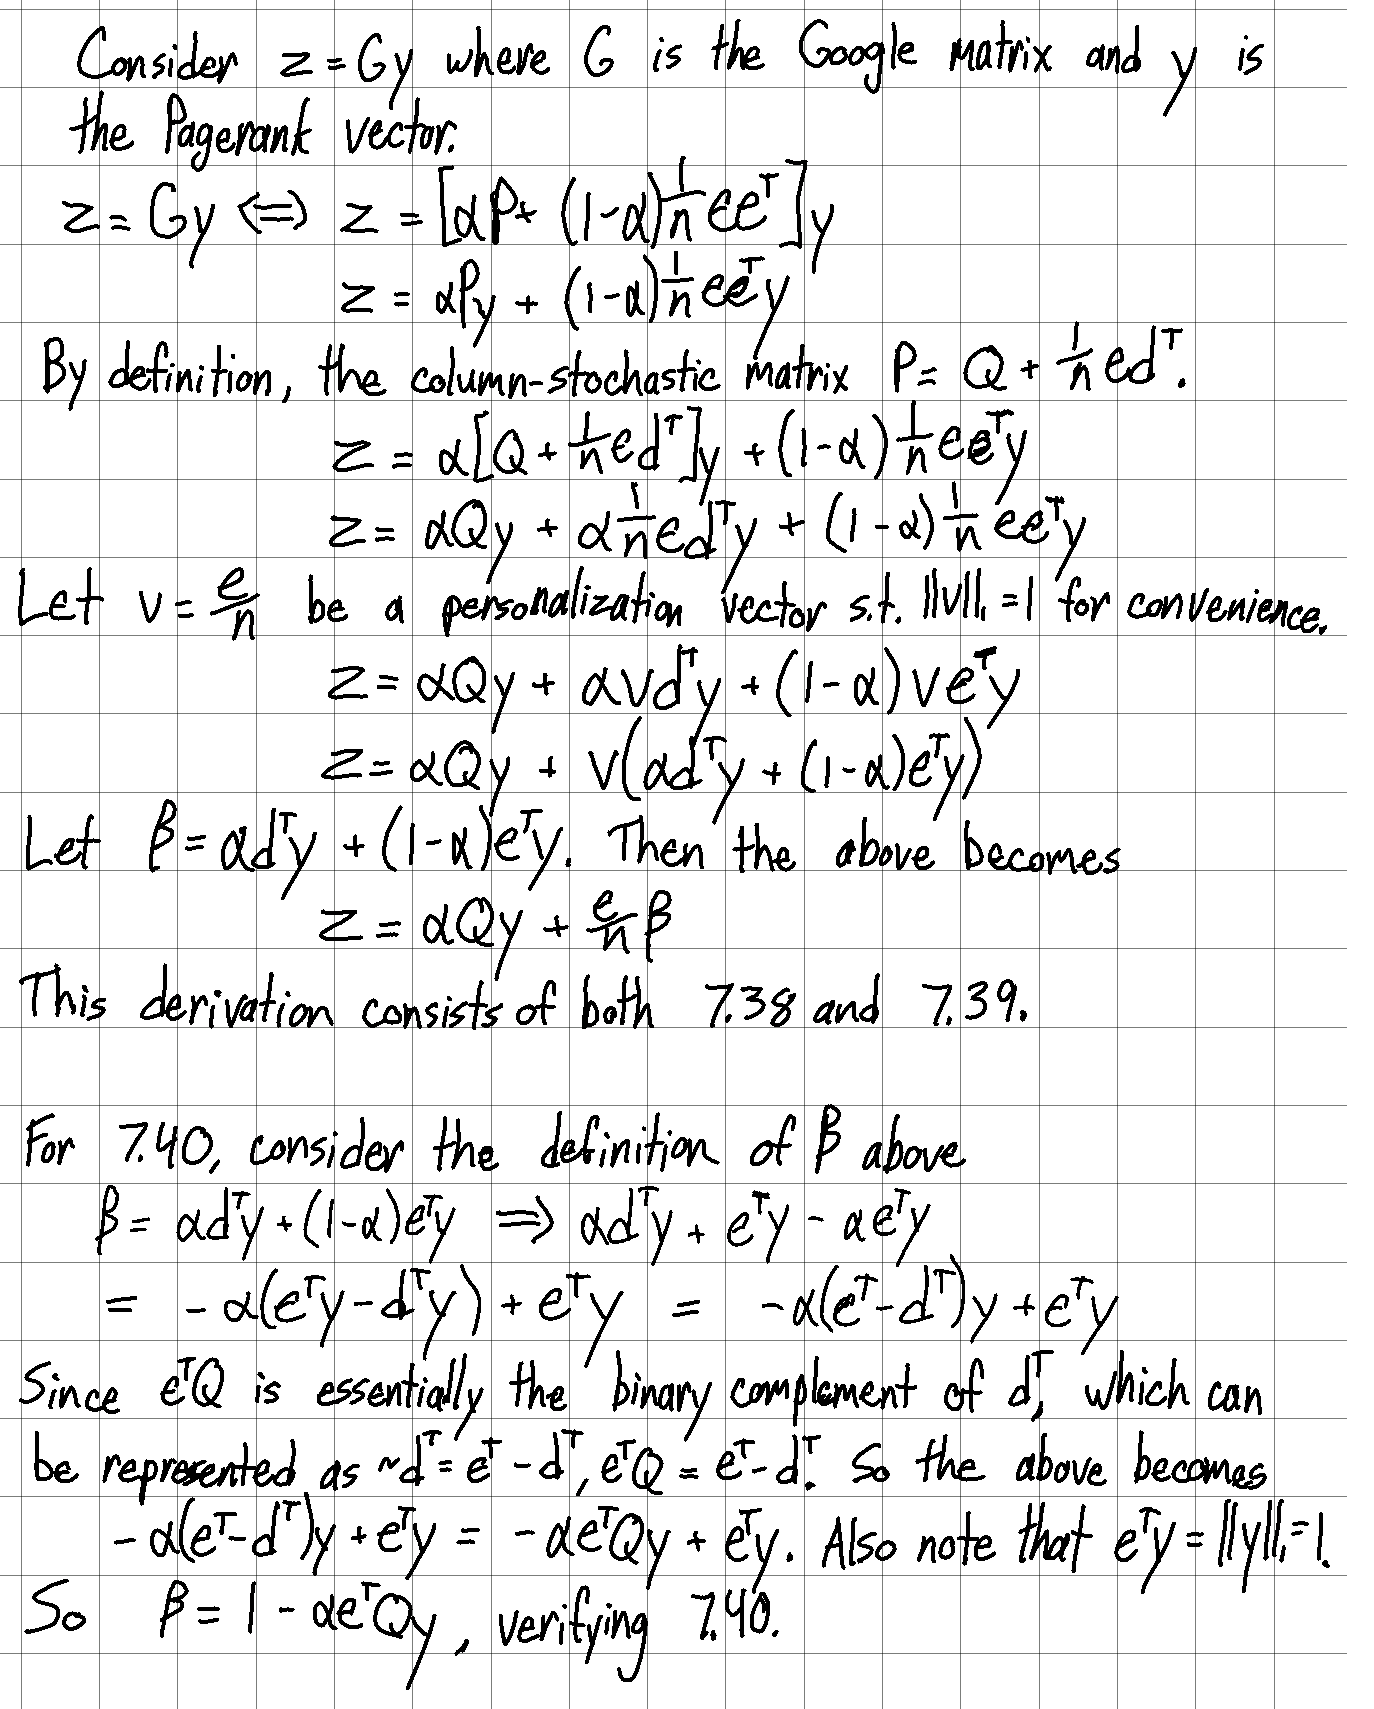 Consider z = Gy where G is the Google matrix and y is
the Pagerank vector.
z = Gy ⟺ z = [αP + (1-α)1/n ee^T]y
z = αPy + (1-α)1/n ee^Ty
By definition, the column-stochastic matrix P = Q + 1/n ed^T.
z = α[Q + 1/n ed^T]y + (1-α)1/n ee^Ty
z = αQy + α1/n ed^Ty + (1-α)1/n ee^Ty
Let v = e/n be a personalization vector s.t. ||v||₁ = 1 for convenience.
z = αQy + αvd^Ty + (1-α)ve^Ty
z = αQy + v(αd^Ty + (1-α)e^Ty)
Let β = αd^Ty + (1-α)e^Ty. Then the above becomes
z = αQy + e/n β
This derivation consists of both 7.38 and 7.39.
For 7.40, consider the definition of β above
β = αd^Ty + (1-α)e^Ty ⟹ αd^Ty + e^Ty - αe^Ty
= -α(e^Ty - d^Ty) + e^Ty = -α(e^T - d^T)y + e^Ty
Since e^TQ is essentially the binary complement of d^T, which can
be represented as ~d^T = e^T - d^T, e^TQ = e^T - d^T. So the above becomes
-α(e^T - d^T)y + e^Ty = -αe^TQy + e^Ty. Also note that e^Ty = ||y||₁ = 1.
So β = 1 - αe^TQy, verifying 7.40.